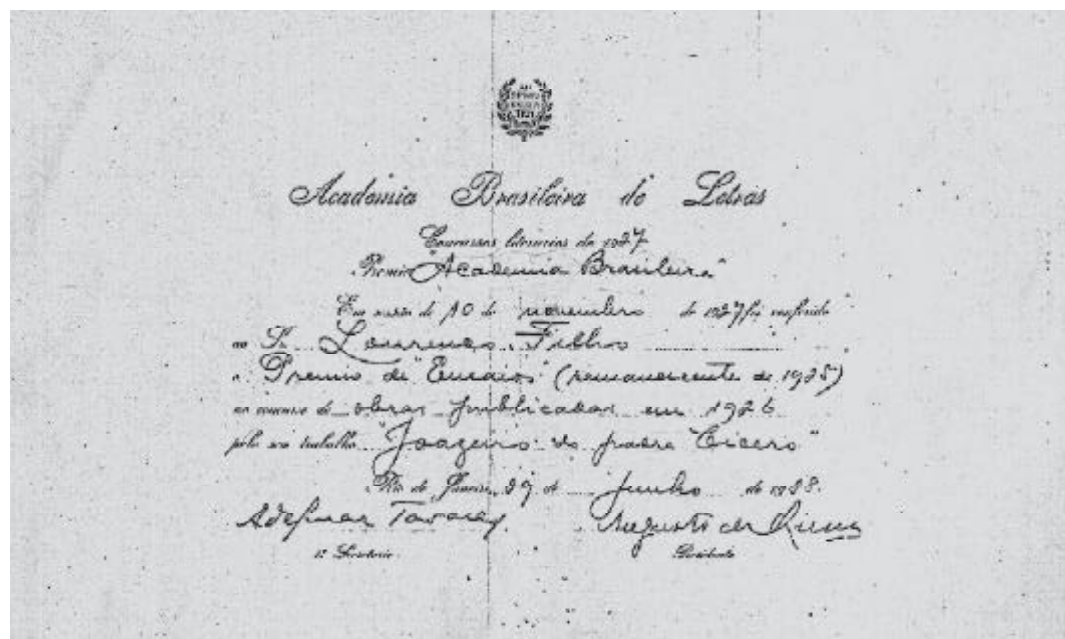 Academia Brasileira de Letras
Concursos literarios de 1927
Premio "Academia Brasileira"
Em sessão de 10 de novembro de 1927 foi conferido
ao Sr. Lourenço Filho
o Premio de "Ensaios" (remanescente de 1925)
no concurso de obras publicadas em 1926
pelo seu trabalho "Joazeiro do padre Cicero"
Rio de Janeiro, 29 de junho de 1928.
Adelmar Tavares Augusto de Lima
1º Secretario Presidente